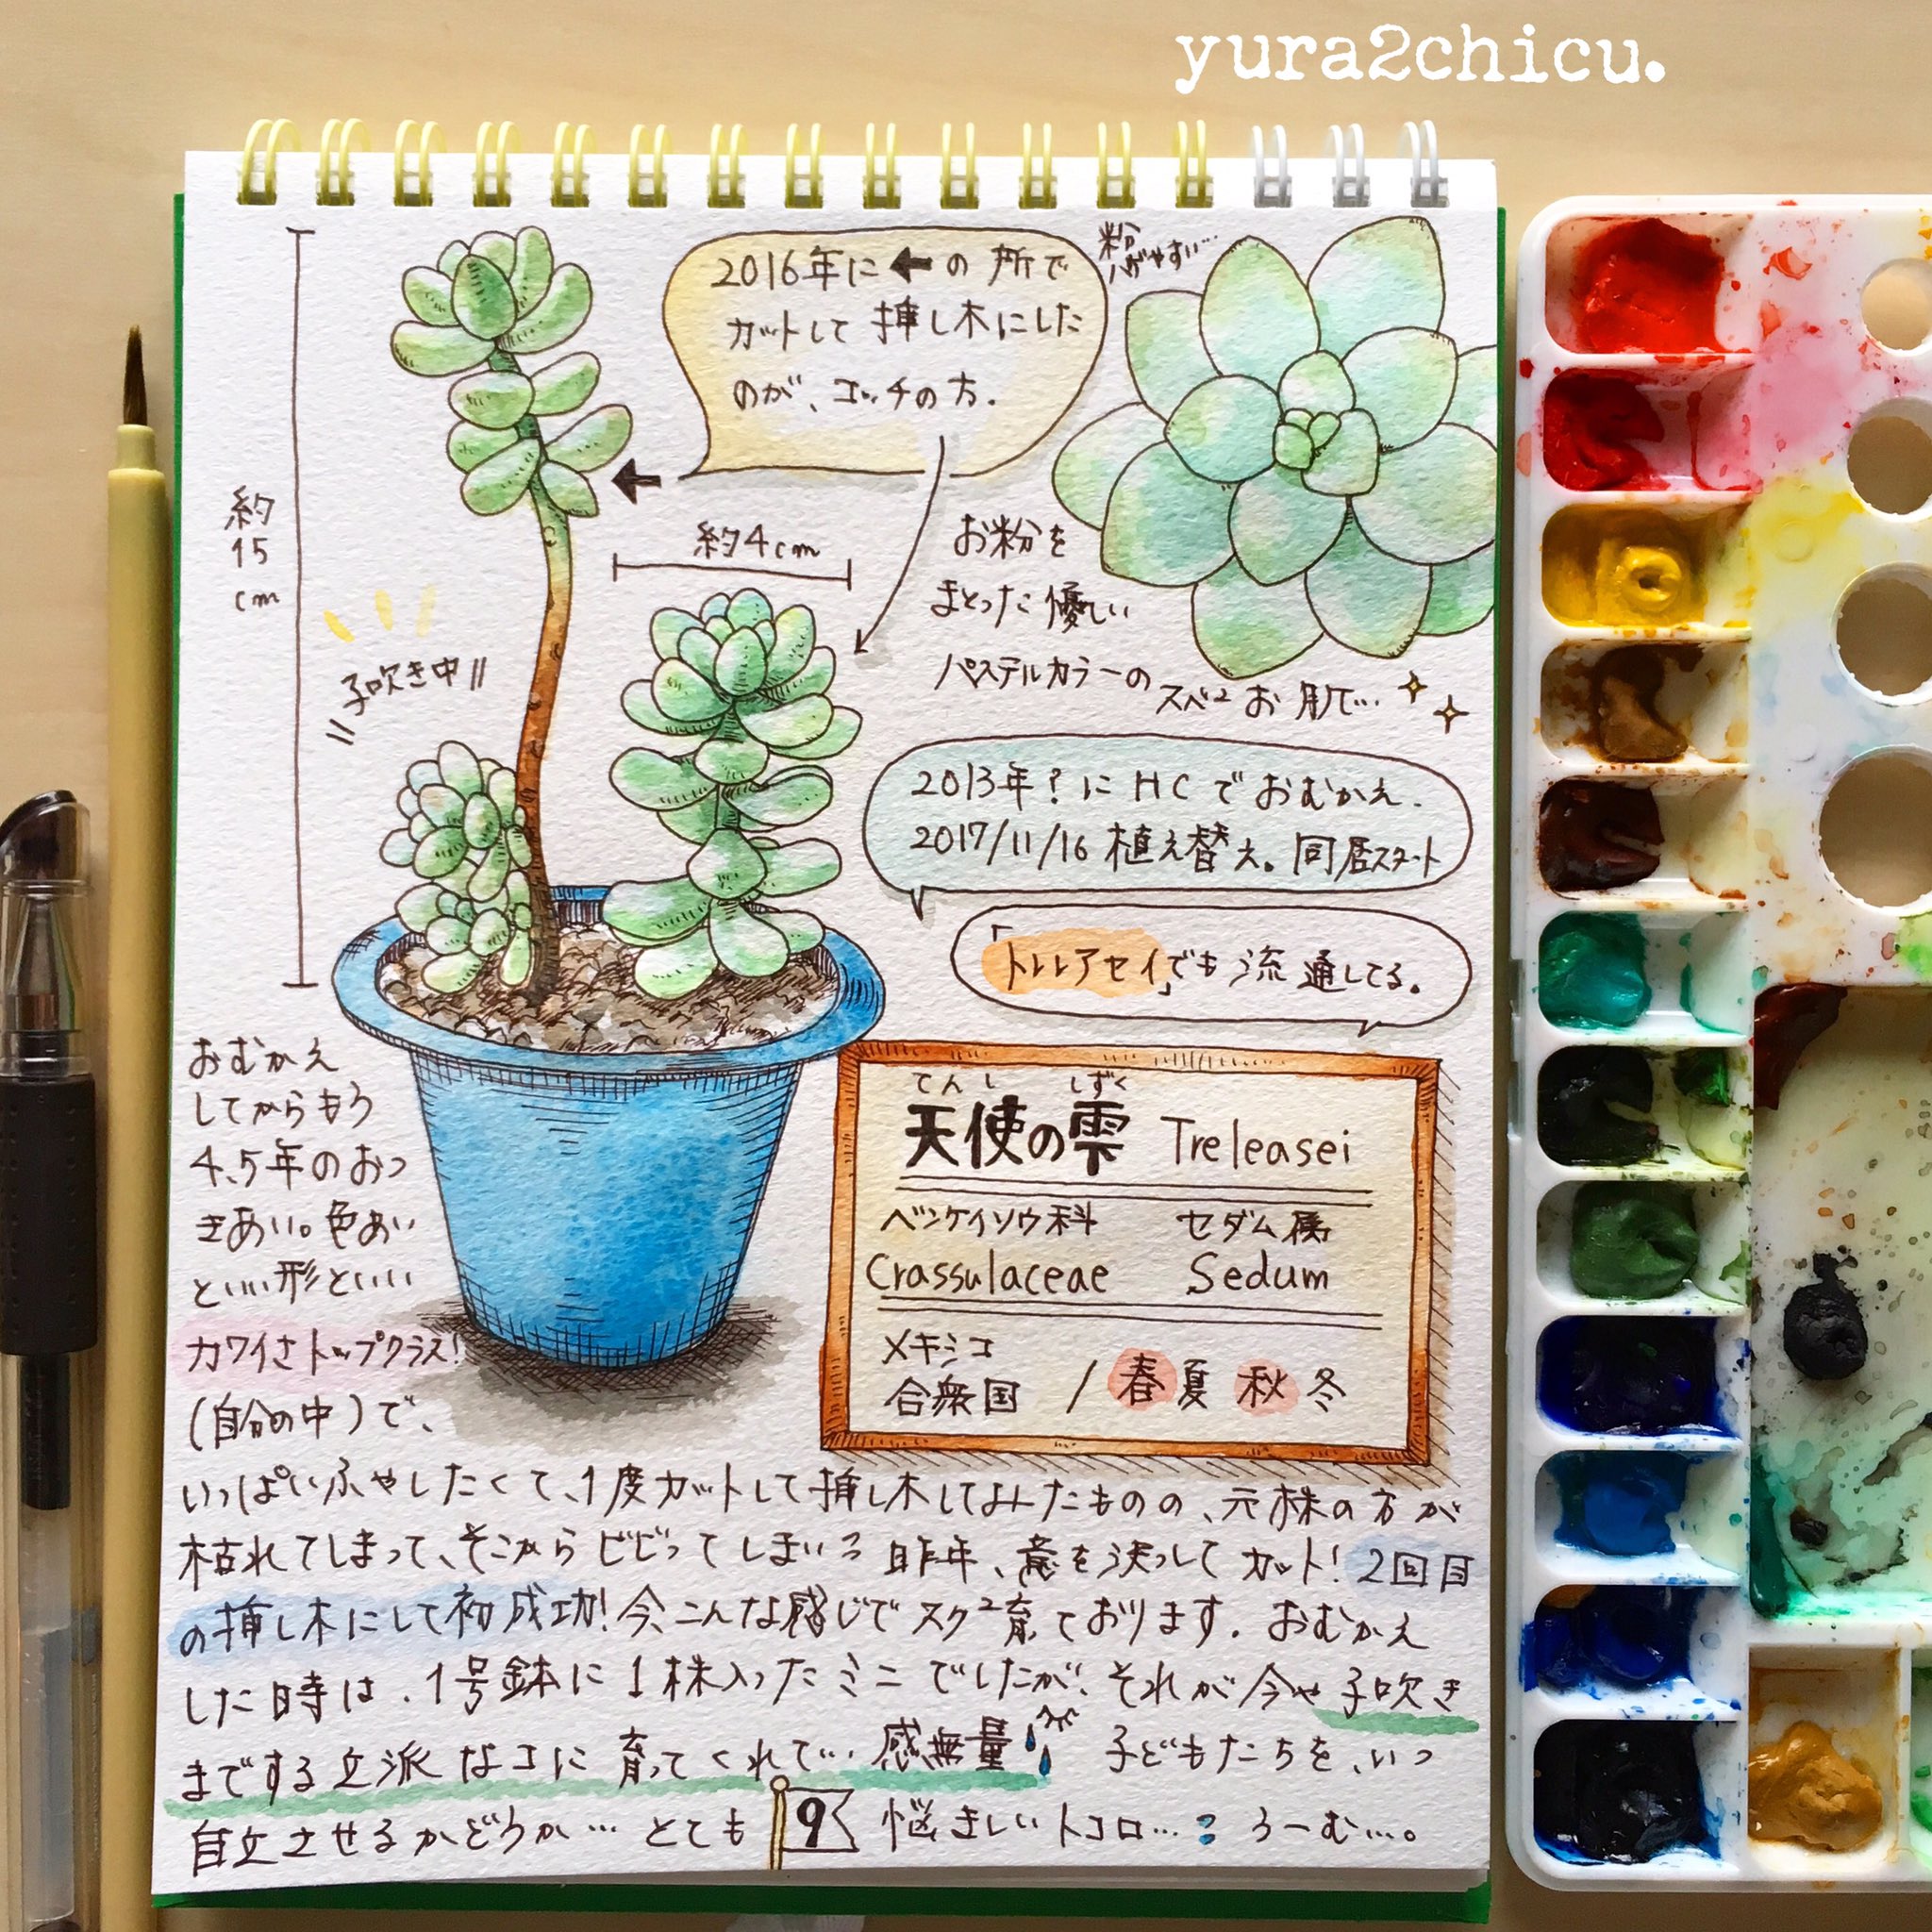 yura2chicu.
2016年に←の所で
カットして挿し木にした
のが、コッチの方.
粉
ハゲやすい…
約
15
cm
約4cm
子吹き中
お粉を
まとった優しい
パステルカラーの
スベ2お肌で…
2013年?にHCでおむかえ.
2017/11/16植え替え。同居スタート
「トレレアセイ」でも流通してる。
てんし しずく
天使の雫 Treleasei
ベンケイソウ科 セダム属
Crassulaceae Sedum
メキシコ
合衆国 / 春夏秋冬
おむかえ
してからもう
4、5年のおつ
きあい。色あい
といい形といい
カワイさトップクラス!
(自分の中)で、
いっぱいふやしたくて、1度カットして挿し木してみたものの、元株の方が
枯れてしまって、そこからビビってしまいつつ昨年、意を決してカット!2回目
の挿し木にして初成功!今、こんな感じでスク2育ております.おむかえ
した時は、1号鉢に1株入ったミニでしたが、それが今や子吹き
までする立派なコに育ってくれて…感無量 子どもたちを、いつ
自立させるかどうか…とても 悩ましいトコロ…: うーむ…。
9